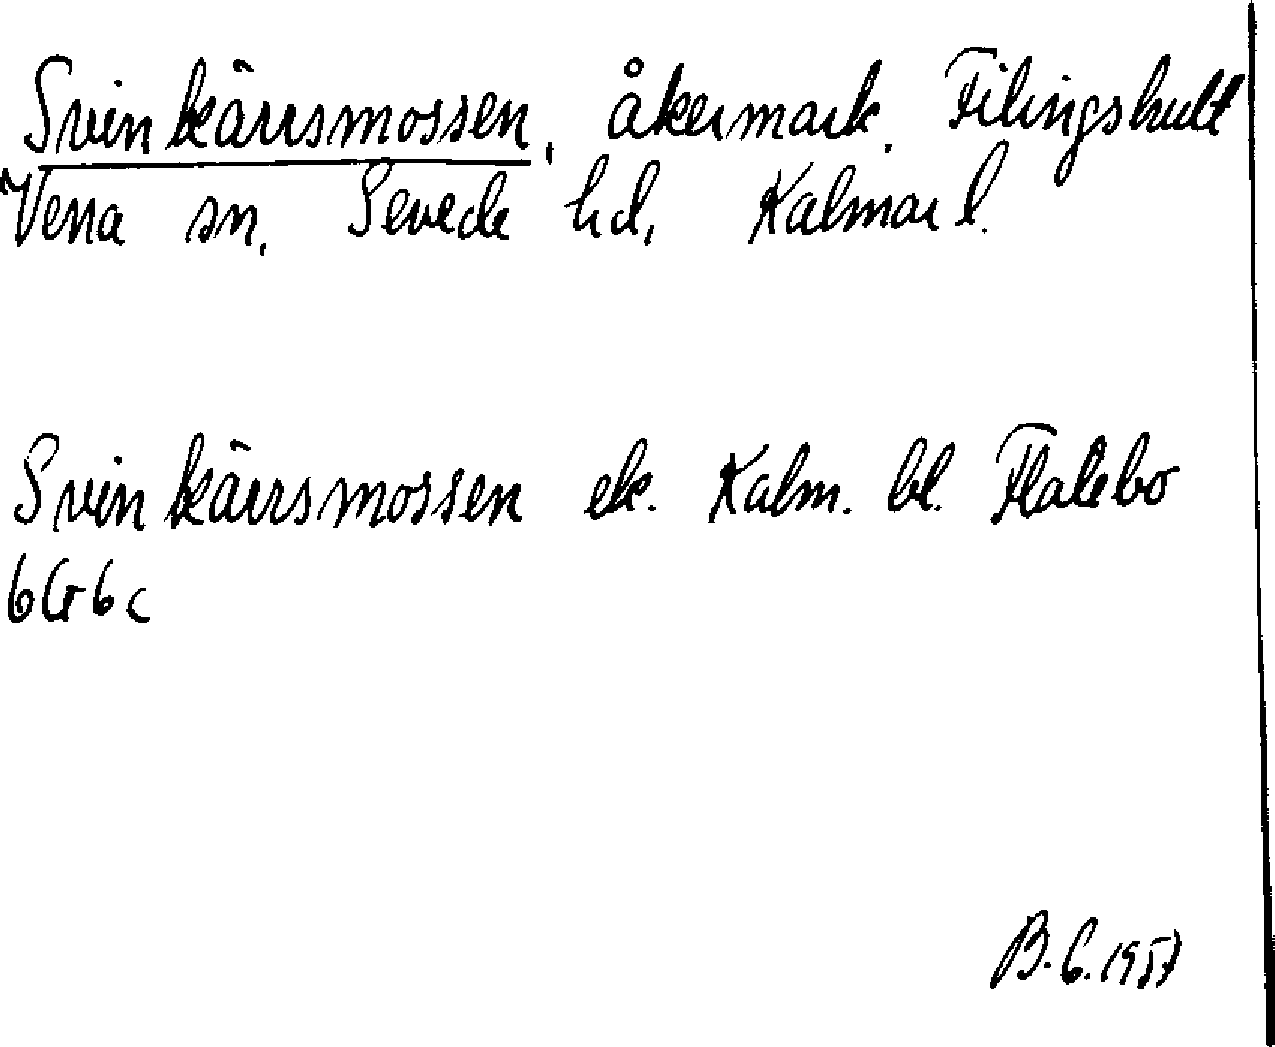 Svinkärrsmossen, åkermark, Filingshult
Vena sn, Sevede hd, Kalmar l.
Svinkärrsmossen ek. Kalm. bl. Flatebo
6G6c
B.G. 1957